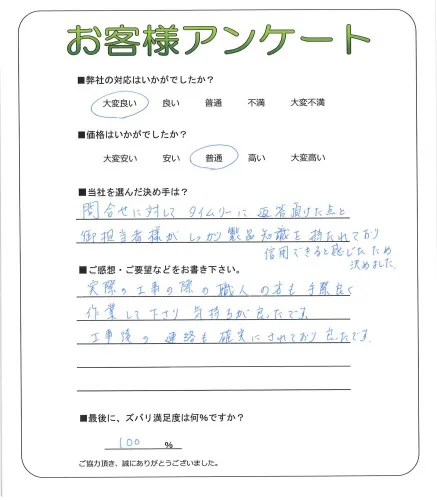 お客様アンケート
■弊社の対応はいかがでしたか？
大変良い 良い 普通 不満 大変不満
■価格はいかがでしたか？
大変安い 安い 普通 高い 大変高い
■当社を選んだ決め手は？
問合せに対して タイムリーに 返答頂けた点と
御担当者様が しっかり製品知識を 持たれており
信用できると感じたため
決めました
■ご感想・ご要望などをお書き下さい。
実際の工事の際の職人の方も 手際良く
作業して下さり 気持ちが良かったです。
工事後の 連絡も 確実にされており 良かったです。
■最後に、ズバリ満足度は何％ですか？
100 ％
ご協力頂き、誠にありがとうございました。